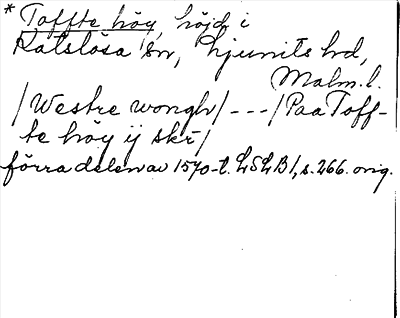 * Toffte höy, höjd i
Katslösa sn, Ljunits hd,
Malm. l.
/Westre wongh/ --- /Paa Toff-
te höy ij skr/
förra delen av 1570-t. LSLB1, s. 266. orig.